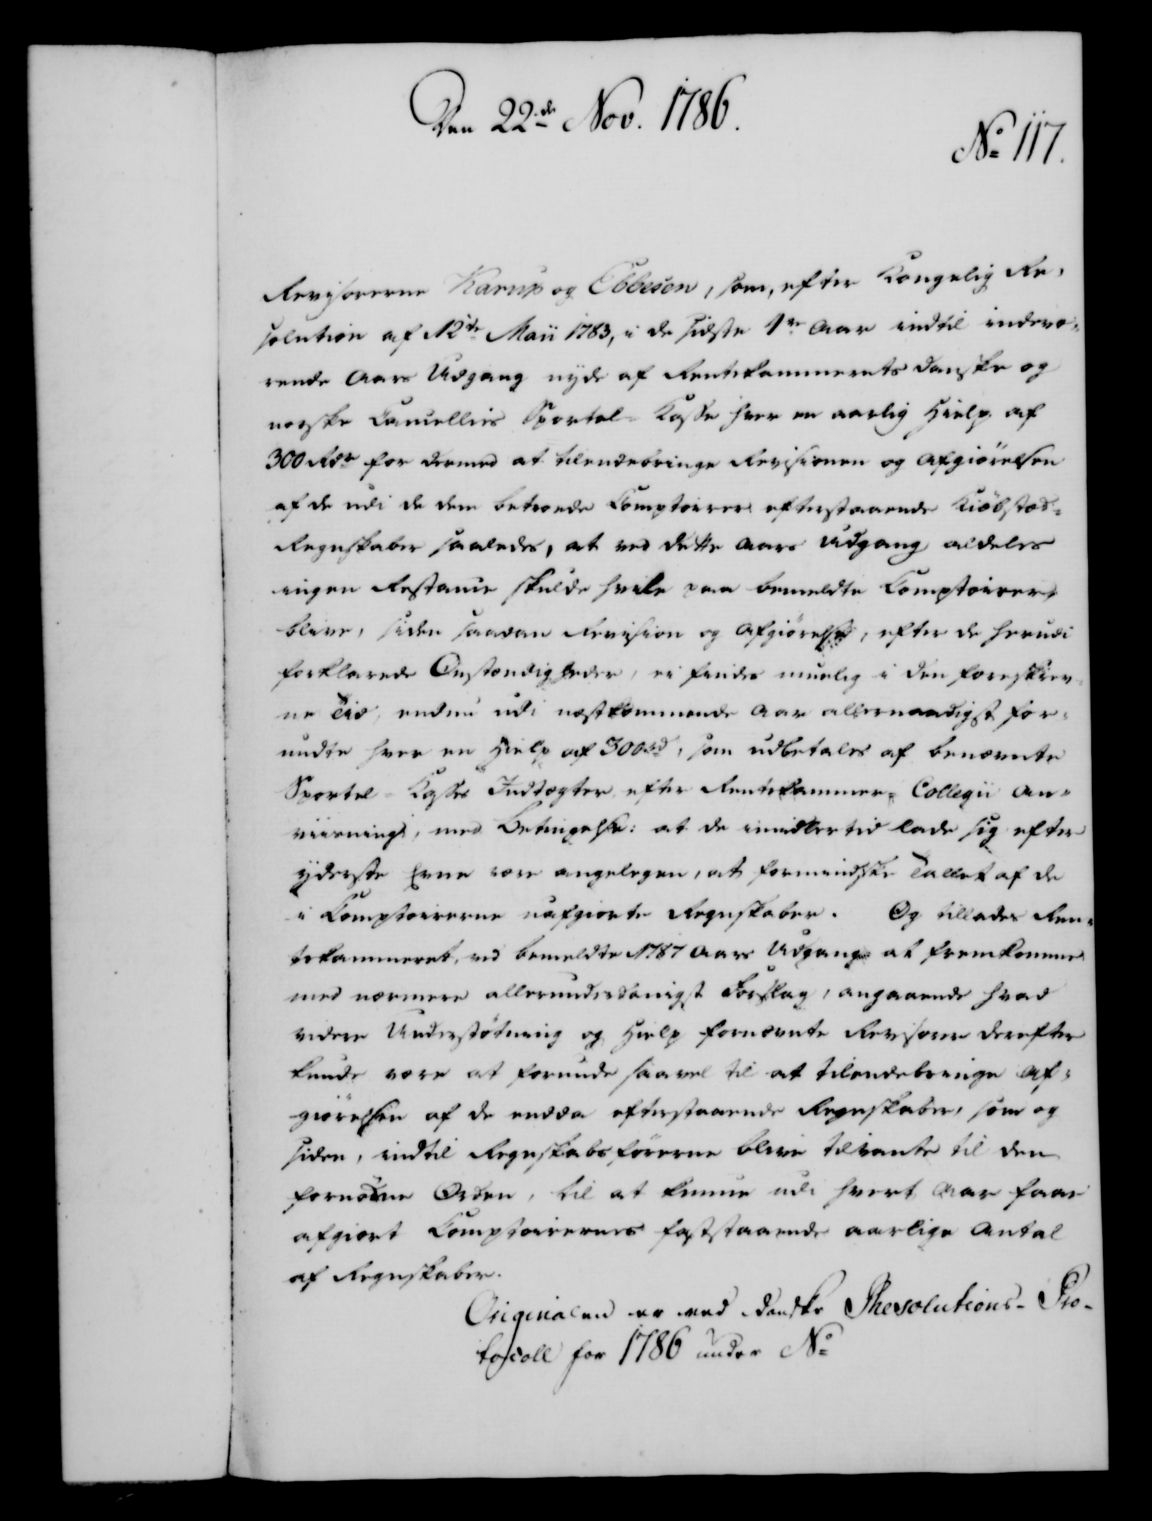 Den 22de Nov. 1786.
No 117.
Revisorerne Karup og Ebbesen, som, efter Kongelig Re-
solution af 12te Maii 1783, i de sidste Aar indtil indevæ-
rende Aars Udgang nyde af Rentekammerets danske og
norske Cancellies Sportel-Kasse hver en aarlig Hielp af
300 Rdr for dermed at tilendebringe Revisionen og Afgiørelsen
af de udi de dem betroede Comptoirer efterstaaende Kiöbstæd-
Regnskaber saaledes, at ved dette Aars Udgang aldeles
ingen Restance skulde hvile paa bemeldte Comptoirer,
blive, siden saadan Revision og Afgiörelse, efter de herudi
forklarede Omstændigheder, ei findes muelig i den foreskrev-
ne Tid, endnu udi næstkommende Aar allernaadigst for-
undte hver en Hielp af 300 rd, som udbetales af benævnte
Sportel-Kasses Indtægter efter Rentekammer-Collegii An-
viisning, med Betingelse: at de imidlertid lade sig efter
yderste Evne være angelegen, at formindske Tallet af de
i Comptoirerne uafgiorte Regnskaber. Og tillades Ren-
tekammeret, ved bemeldte 1787 Aars Udgang at fremkomme
med nærmere allerunderdanigst Forslag, angaaende hvad
videre Understøtning og Hielp fornævnte Revisorer derefter
kunde være at forunde saavel til at tilendebringe Af-
giörelsen af de endda efterstaaende Regnskaber, som og
siden, indtil Regnskabsförerne blive tilvante til den
fornödne Orden, til at kunne udi hvert Aar faae
afgiort Comptoirernes faststaaende aarlige Antal
af Regnskaber.
Originalen er ved danske Rhesolutions-Pro-
tocoll for 1786 under No